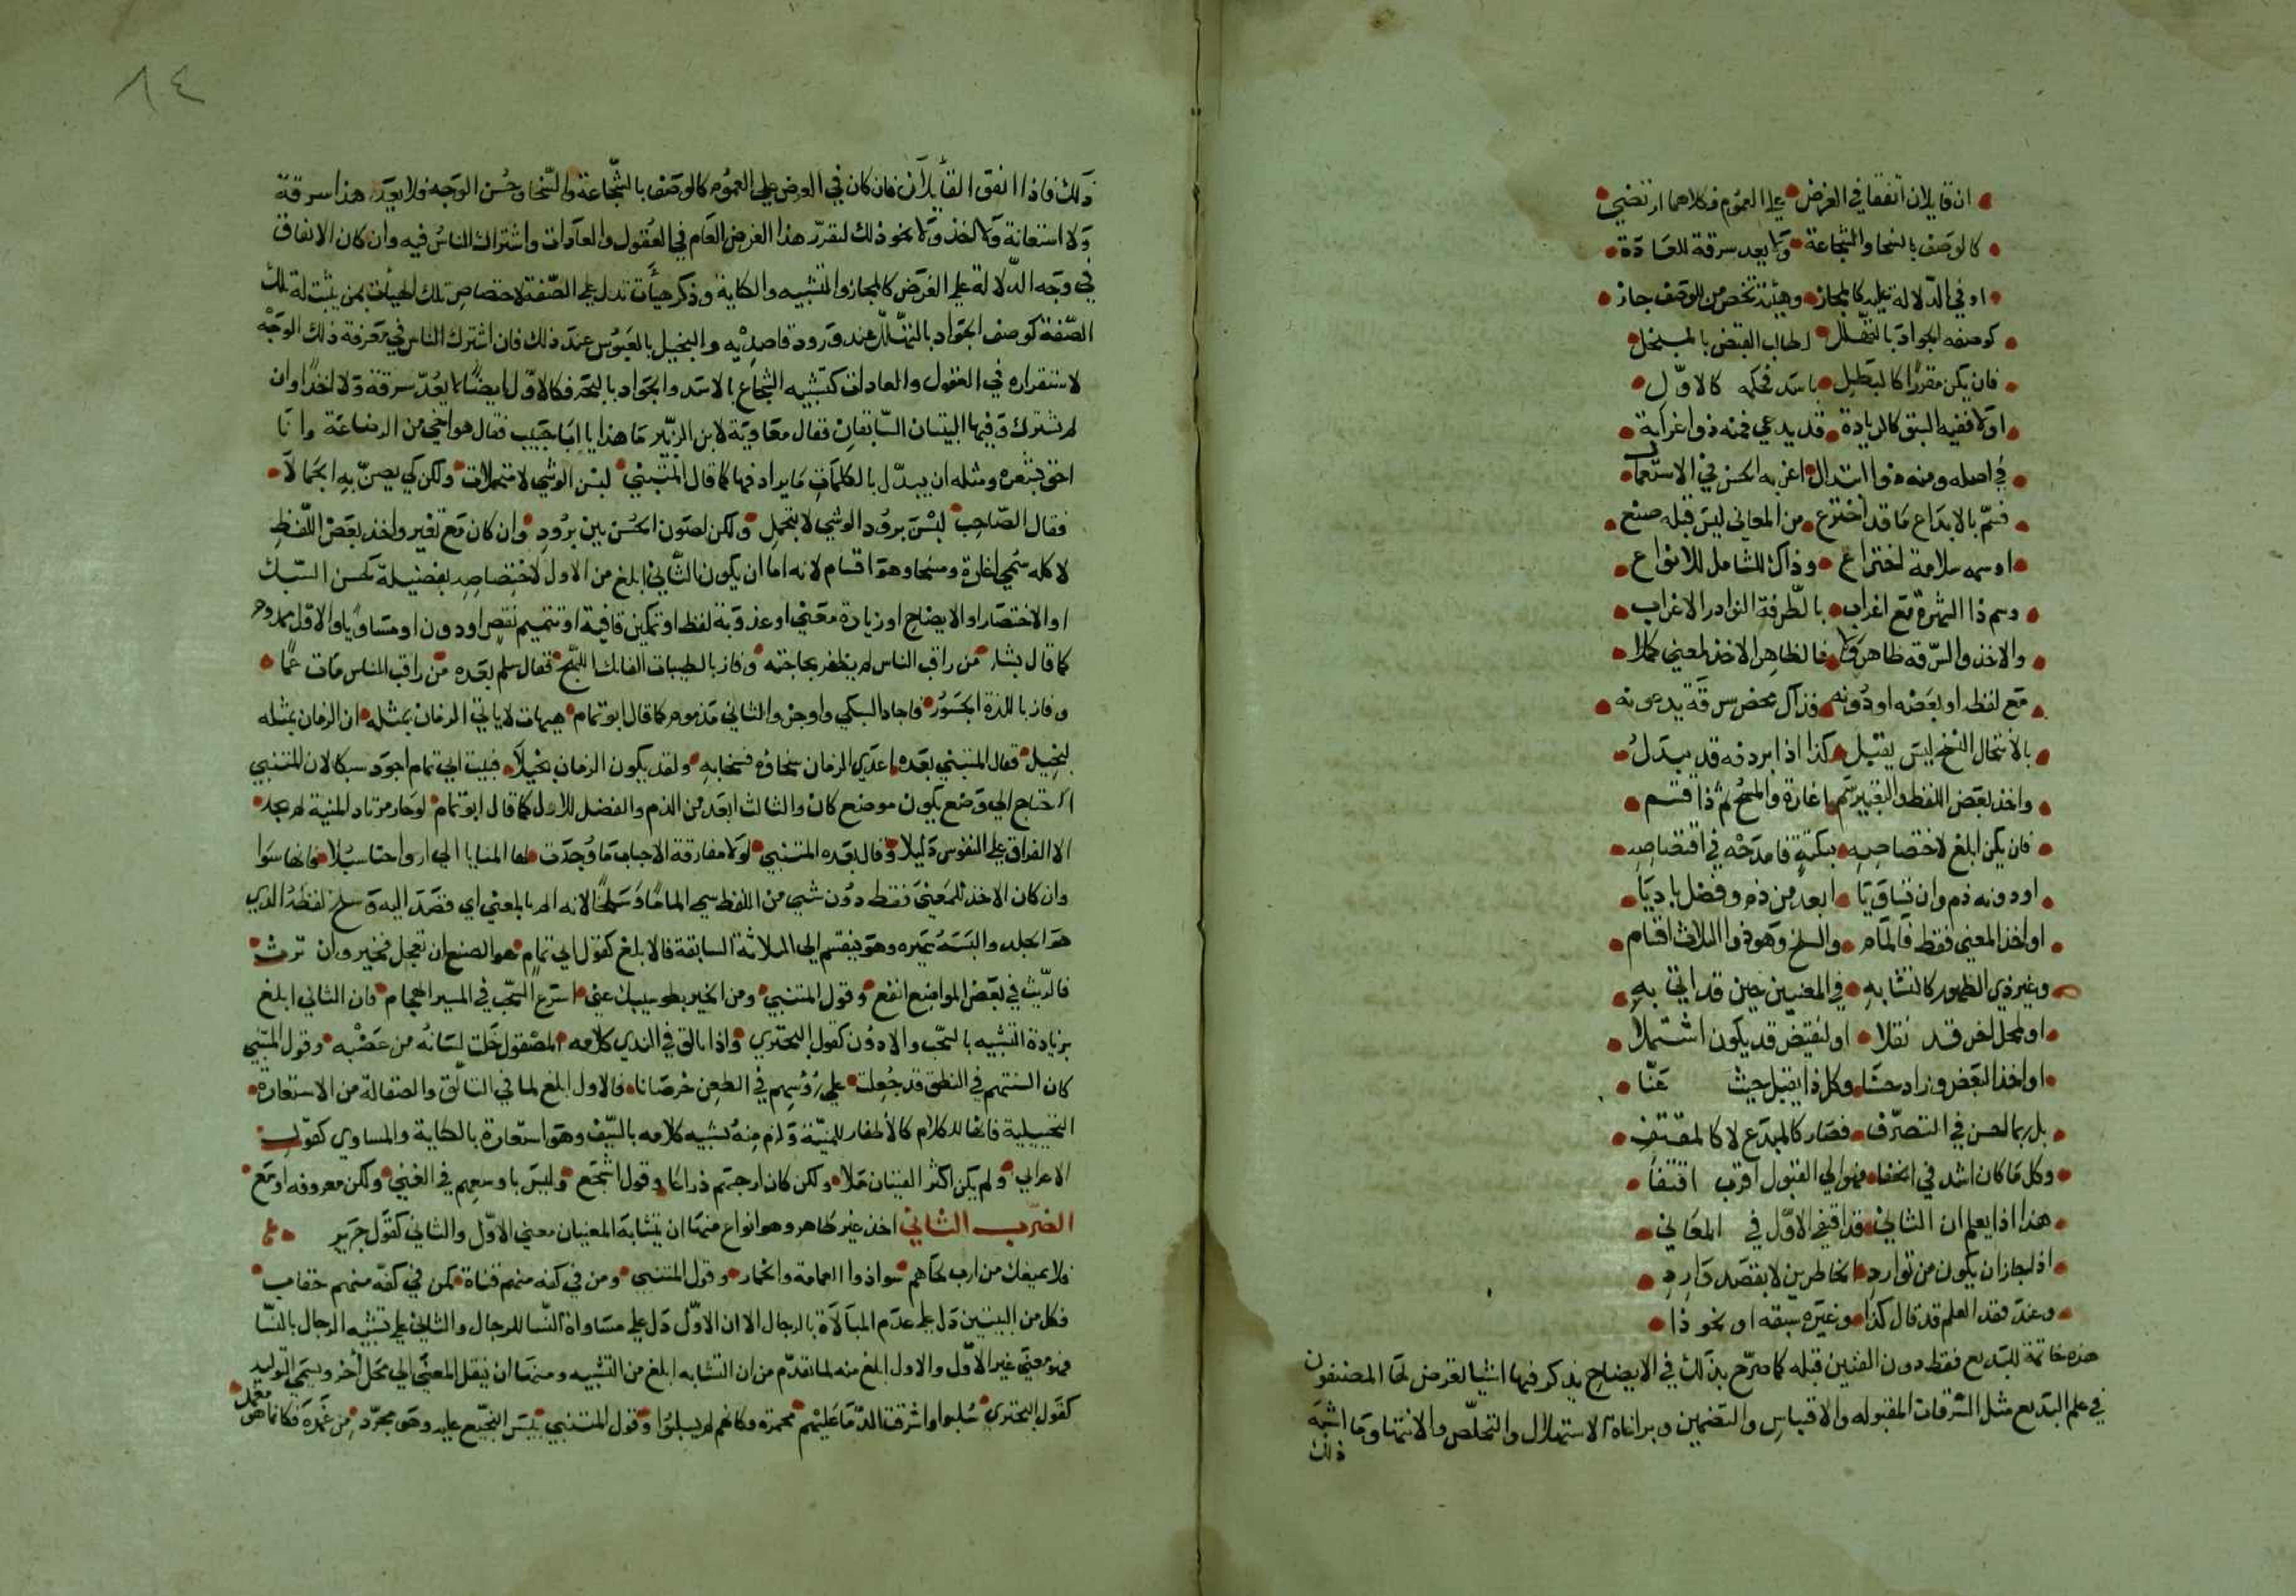 ان قايلان اتفقا في الغرض على العموم فكلاهما ارتضي
كالوصف بالسخا والشجاعة ولا يعد سرقة للعادة
او في الدلالة عليه كالمجاز وهيئة تخص من للوصف جاز
كوصفه الجواد بالتهلل لطالب القبض بالمبخل
فان يكن مقررا كالبطل باسد فحكمه كالاول
اولا ففيه السبق كالزيادة قد يدعي فمنه ذو اغرابة
في اصله ومنه ذو ابتذال اغربه الحسن في الاستعمال
فسم بالابداع ما قد اخترع من المعاني ليس قبله صنع
او سمه سلامة اختراع وذاك الشامل للانواع
وسم ذا الشهرة مع اغراب بالطرفة النوادر الاغراب
والاخذ والسرقه ظاهر ولا فالظاهر الاخذ لمعني كملا
مع لفظه او بعضه او دونه فذاك محض سرقة يدعونه
بالانتحال النسخ ليس يقبل كذا اذا بردفه قد يبدل
واخذ بعض اللفظ والتغيير سم اغارة والمسخ ثم ذا قسم
فان يكن ابلغ لاختصاصه بنكتة فامدحه في اقتصاصه
او دونه ذم وان تساويا ابعد من ذم وفضل باديا
او اخذ المعني فقط فالمام والسلخ وهو ذو الثلاث اقسام
وغير ذي الظهور كالتشابه في المعنيين حين قد اتي به
او لمحل اخر قد نقلا او لنقيض قد يكون اشتملا
او اخذ البعض وزاد حسنا وكل ذا يقبل حيث عنا
بل ربما احسن في التصرف فصار كالمبدع لا كالمقتفي
وكل ما كان اشد في الخفا فهو الي القبول اقرب اقتفا
هذا اذا يعلم ان الثاني قد اقتفي الاول في المعاني
اذ جاز ان يكون من توارد الخاطرين لا بقصد وارد
وعند فقد العلم قد قال كذا وغيره سبقه او نحو ذا
هذه خاتمة للبديع فقط دون الفنين قبله كما صرح بذلك في الايضاح يذكر فيها اشيا لغرض لها المصنفون
في علم البديع مثل السرقات المقبوله والاقباس والتضمين وبراعة الاستهلال والتخلص والانتها وما اشبه
ذلك
٨٤
ذلك فاذا اتفق القايلان فان كان في الغرض على العموم كالوصف بالشجاعة والسخا وحسن الوجه فلا يعد هذا سرقة
ولا استعانة ولا اخذ ولا نحو ذلك لتقرر هذا الغرض العام في العقول والعادات واشتراك الناس فيه وان كان الاتفاق
في وجه الدلالة على الغرض كالمجاز والتشبيه والكناية وذكر هيأت تدل على الصفة لاختصاص تلك الهيأت بمن يثبت له تلك
الصفة كوصف الجواد بالتهلل عند ورود قاصديه والبخيل بالعبوس عند ذلك فان اشترك الناس في معرفة ذلك الوجه
لاستقراره في العقول والعادات كتشبيه الشجاع بالاسد والجواد بالبحر فكالاول ايضا لا يعد سرقة ولا اخذا وان
لم يشترك وفيها البيتان السابقان فقال معاوية لابن الزبير ما هذا يا ابا خبيب فقال هو اخي من الرضاعة وانا
احق بشعره ومثله ان يبدل بالكلمات ما يرادفها كما قال المتنبي لبسن الوشي لا متجملات ولكن كي يصن به الجمالا
فقال الصاحب لبسن برود الوشي لا بتجمل ولكن لصون الحسن بين برود وان كان مع تغير واخذ بعض اللفظ
لا كله سمي اغارة ومسخا وهو اقسام لانه اما ان يكون الثاني ابلغ من الاول لاختصاصه بفضيلة كحسن السبك
او الاختصار او الايضاح او زيادة معني او عذوبة لفظ او تمكين قافية او تتميم نقص او دون او مساويا والاول ممدوح
كما قال بشار من راقب الناس لم يظفر بحاجته وفاز بالطيبات الفاتك اللهج فقال سلم بعده من راقب الناس مات غما
وفاز باللذة الجسور فاجاد السبك واوجز والثاني مذموم كما قال ابو تمام هيهات لا ياتي الزمان بمثله ان الزمان بمثله
لبخيل فقال المتنبي بعده اعدي الزمان سخاؤه فسخا به ولقد يكون الزمان بخيلا فبيت ابي تمام اجود سبكا لان المتنبي
احتاج الي وضع يكون موضع كان والثالث ابعد من الذم والفضل للاول كما قال ابو تمام لو حار مرتاد المنية لم يجد
الا الفراق على النفوس دليلا وقال بعده المتنبي لولا مفارقة الاحباب ما وجدت لها المنايا الي ارواحنا سبلا فانها سوا
وان كان الاخذ للمعني فقط دون شي من اللفظ سمي الماما وسلخا لانه الم بالمعني اي قصد اليه وسلخ لفظه الذي
هو الجلد والبسه غيره وهو ينقسم الي الثلاثة السابقة فالابلغ كقول ابي تمام هو الصنع ان تعجل فخير وان ترث
فالريث في بعض المواضع انفع وقول المتنبي ومن الخير بطو سيبك عني اسرع السحب في المسير الجهام فان الثاني ابلغ
بزيادة التشبيه بالسحب والادون كقول البحتري واذا تالق في الندي كلامه المصقول خلت لسانه من عضبه وقول المتنبي
كان السنتهم في النطق قد جعلت على رؤسهم في الطعن خرصانا فالاول ابلغ لما في التالق والصقالة من الاستعارة
التخييلية فانها للكلام كالاظفار للمنية ولزم منه تشبيه كلامه بالسيف وهو استعارة بالكناية والمساوي كقول
الاعرابي ولم يكن اكثر الفتيان مالا ولكن كان ارحبهم ذراعا وقول اشجع وليس باوسعهم في الغني ولكن معروفه اوسع
الضرب الثاني اخذ غير ظاهر وهو انواع منها ان يتشابه المعنيان معني الاول والثاني كقول جرير
فلا يمنعك من ارب لحاهم سواذوا العمامة والخمار وقول المتنبي ومن في كفه منهم قناة كمن في كفه منهم خضاب
فكل من البيتين دل على عدم المبالاة بالرجال الا ان الاول دل على مساواة النسا للرجال والثاني على تشبيه الرجال بالنسا
فهو معني غير الاول والاول ابلغ منه لما تقدم من ان التشابه ابلغ من التشبيه ومنها ان ينقل المعني الي محل اخر ويسمي التوليد
كقول البحتري سلبوا واشرقت الدما عليهم محمرة وكانهم لم يسلبوا وقول المتنبي يبس النجيع عليه وهو مجرد من غمده فكانما هو
مغمد